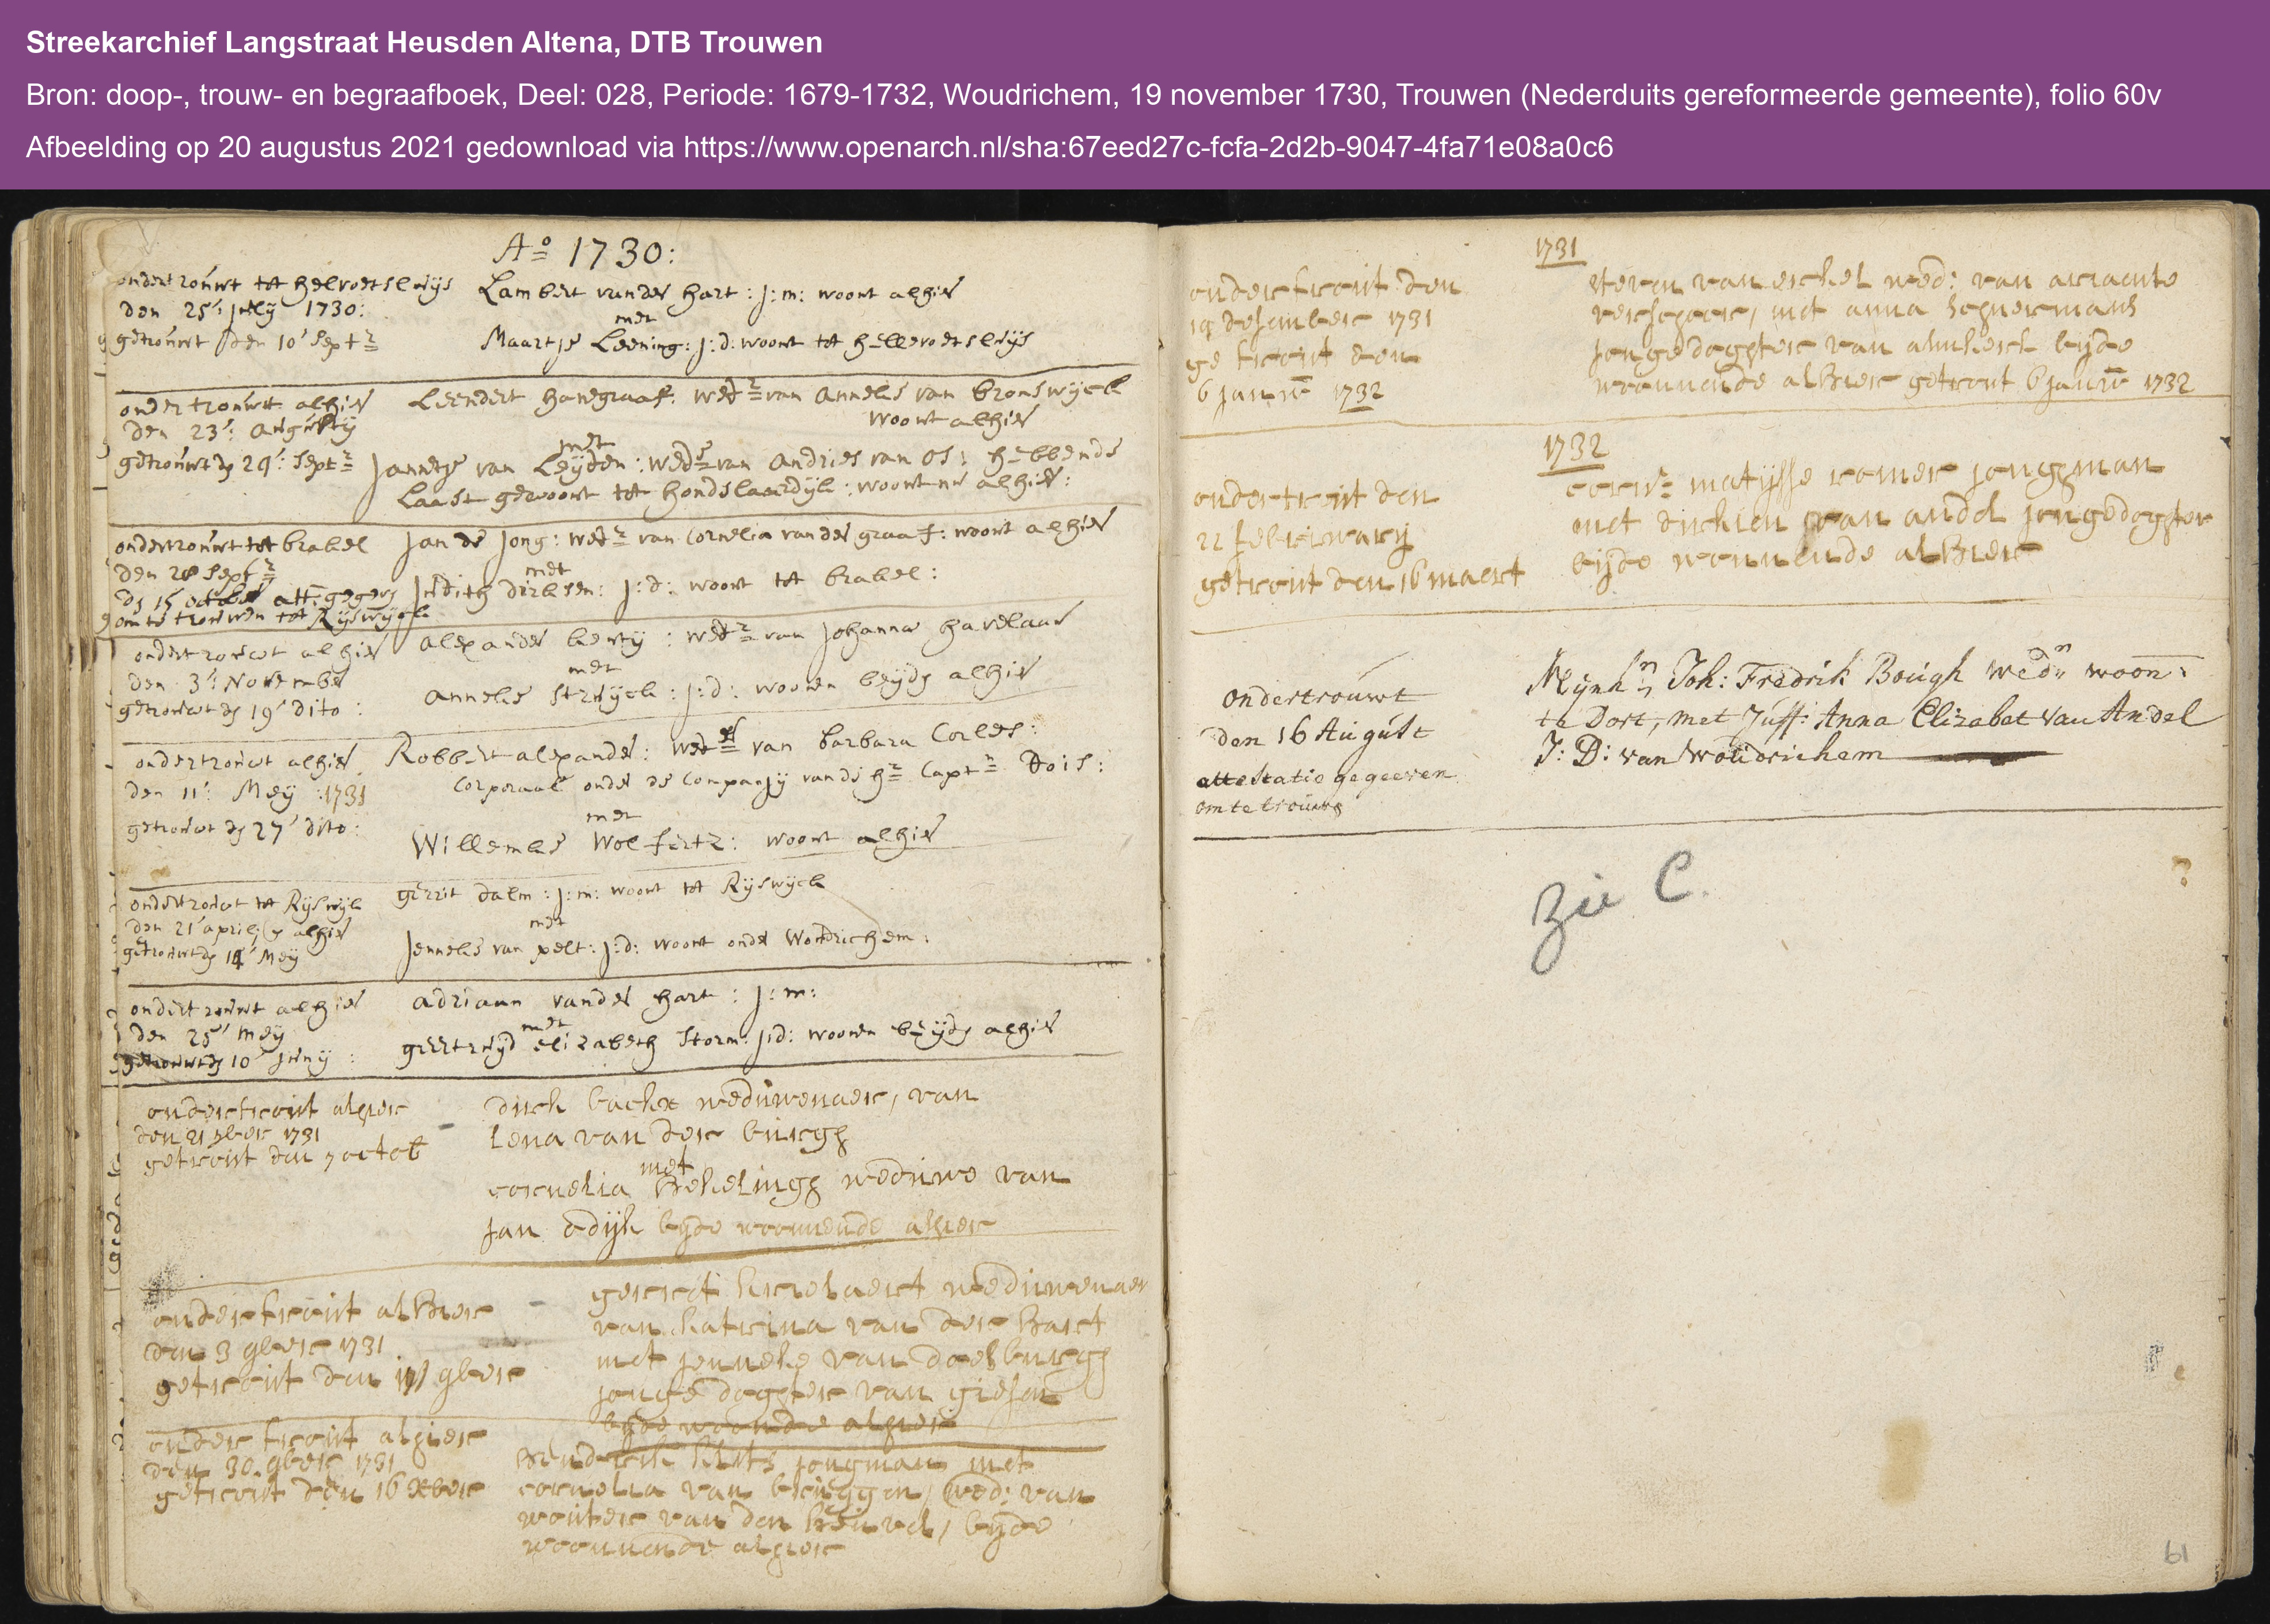 Streekarchief Langstraat Heusden Altena, DTB Trouwen
Bron: doop-, trouw- en begraafboek, Deel: 028, Periode: 1679-1732, Woudrichem, 19 november 1730, Trouwen (Nederduits gereformeerde gemeente), folio 60v
Afbeelding op 20 augustus 2021 gedownload via https://www.openarch.nl/sha:67eed27c-fcfa-2d2b-9047-4fa71e08a0c6
Ao 1730:
ondertrouwt tot helvoetsluijs
den 25: july 1730:
getrouwt den 10' Septr
Lambert vander hart: j:m: woont alhier
met
Maartje Leening: j:d: woont tot hellevoetsluijs
ondertrouwt alhier
den 23: Augusty
getrouwt dn 24: Septr
Leendert hanegraaf: wedr van Anneke van bronswijck
woont alhier
met
Jannetje van Leijden: wede van Andries van Os: hebbende
Laast gewoont tot hondslaardijk: woont nu alhier:
ondertrouwt tot brakel
den 28 Septr
dn 15 october att: gegevn
om te trouwen tot Rijswijck
Jan de Jong: wedr van Cornelia vander graaf: woont alhier
met
Judith dirksen: j:d: woont tot brakel:
ondertrouwt alhier
den 3: November
getrouwt dn 19' dito:
Alexander : wedr van Johanna havelaar
met
Anneke Strujck: j:d: woonen beijde alhier
ondertrouwt alhier
den 11: Meij :1731
getrouwt dn 27' dito:
Robbert alexander: wedr van barbara Corles:
Corporaal onder de Compagnij van de hr Captn Dois:
met
Willemke Wolfertz: woont alhier
ondertrouwt tot Rijswijk
den 21' april en alhier
getrouwt dn 14' Meij
gerrit dalm: j:m: woont tot Rijswijck
met
Jenneke van pelt: j:d: woont onder Woudrichem:
ondertrouwt alhier
den 25' meij
getrouwt dn 10' Junij:
adriaan vander hart: j:m:
met
geertruijd elizabeth Storm: j:d: woonen beijde alhier
ondertrout alhier
den 21 7ber 1731
getrout den 7 octob
dirck backx weduwenaer, van
Lena van der burgh
met
cornelia hekelingh weduwe van
Jan odijk bijde woonnende alhier
ondertrout alhier
den 3 9ber 1731
getrout den 9ber
gerrit weduwenaer
van katrina van der hart
met jenneke van doesburgh
jonge doghter van giesen
bijde woonde alhier
ondertrout alhier
den 30 9ber 1731
getrout den 16 xber
henderik jongman met
cornelia van bruggen, wed: van
wouter van den heuvel, bijde
woonnende alhier
1731
ondertrout den
14 desember 1731
getrout den
6 janwr 1732
steven van eschel wed: van
verschoor, met anna
jonge doghter van almkerk bijde
woonnende alhier getrout 6 janwr 1732
1732
ondertrout den
22 februwarij
getrout den 16 maert
matijsse romer jonghman
met van andel jongedoghter
bijde wonnende alhier
ondertrouwt
den 16 August
attestatie gegeeven
om te trouwn
Mijnhr Joh: Fredrik Bough wedn woon:
te Dort, met Juff: Anna Elizabet van Andel
J: D: van Woudrichem
zie C.
?
61